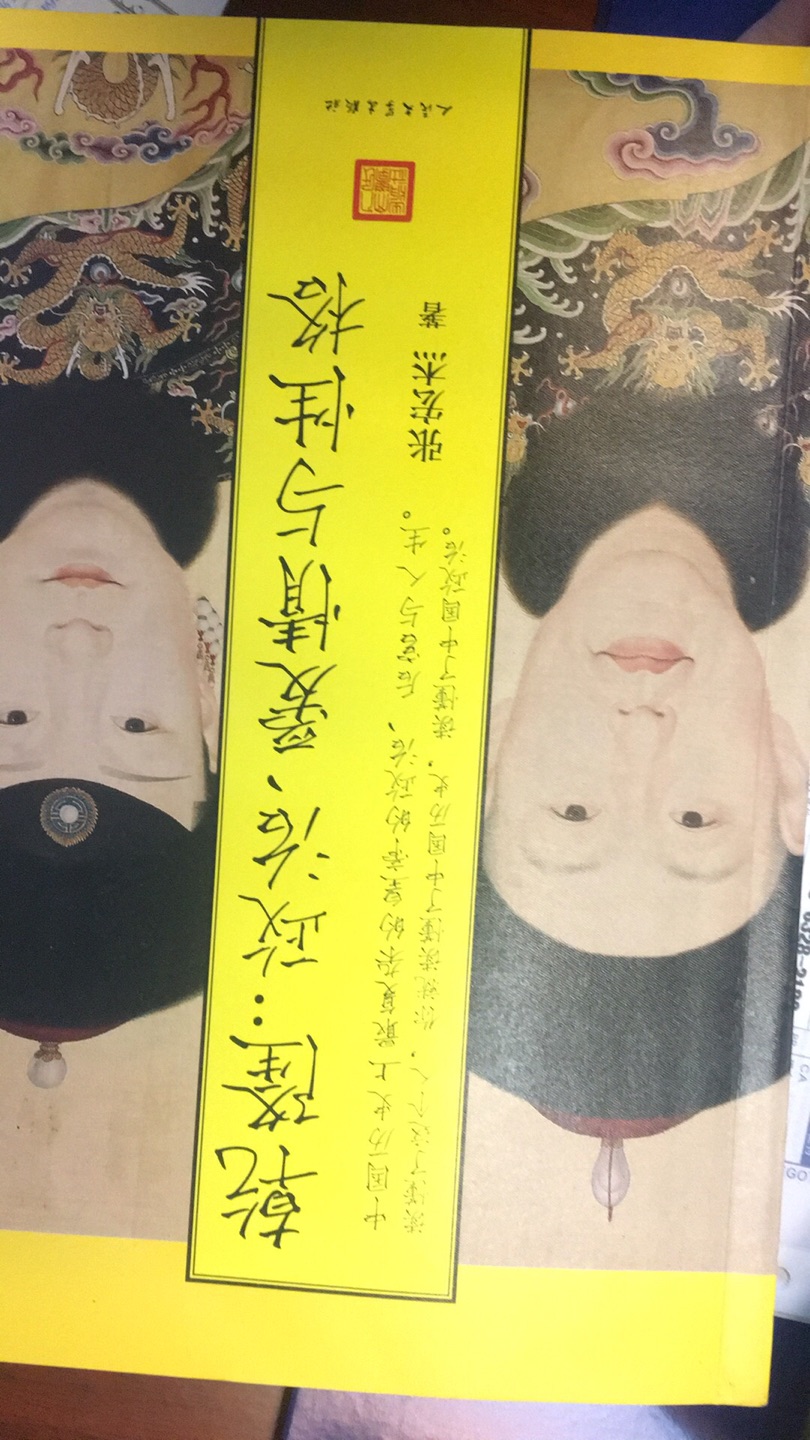 乾隆：政治、爱情与性格
中国历史上最复杂的皇帝的政治、后宫与人生。
读懂了这个人，你就读懂了中国历史，读懂了中国政治。
张宏杰 著
人民文学出版社
CA
EGO